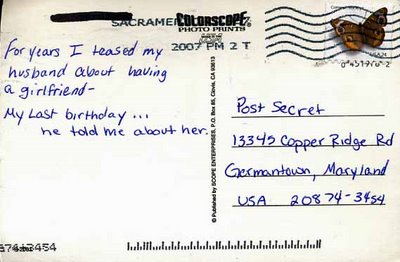 SACRAMEN
COLORSCOPE
PHOTO PRINTS
2007 PM 2 T
For years I teased my
husband about having
a girlfriend-
My last birthday ...
he told me about her.
Published by SCOPE ENTERPRISES, P.O. Box 85, Clovis, CA 93613
Post Secret
13345 Copper Ridge Rd
Germantown, Maryland
USA 20874-3454